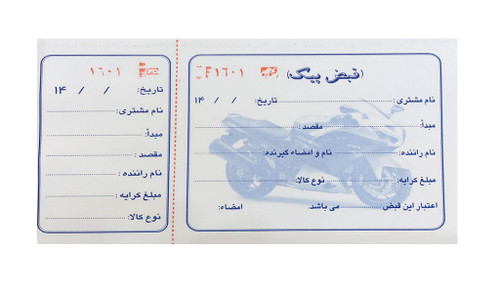 (قبض پیک)
۱۶۰۱
نام مشتری: تاریخ: / / ۱۴
مبدأ: مقصد:
نام راننده: نام و امضاء گیرنده:
مبلغ کرایه: نوع کالا:
اعتبار این قبض می باشد. امضاء:
۱۶۰۱
تاریخ: / / ۱۴
نام مشتری:
مبدأ:
مقصد:
نام راننده:
مبلغ کرایه:
نوع کالا: